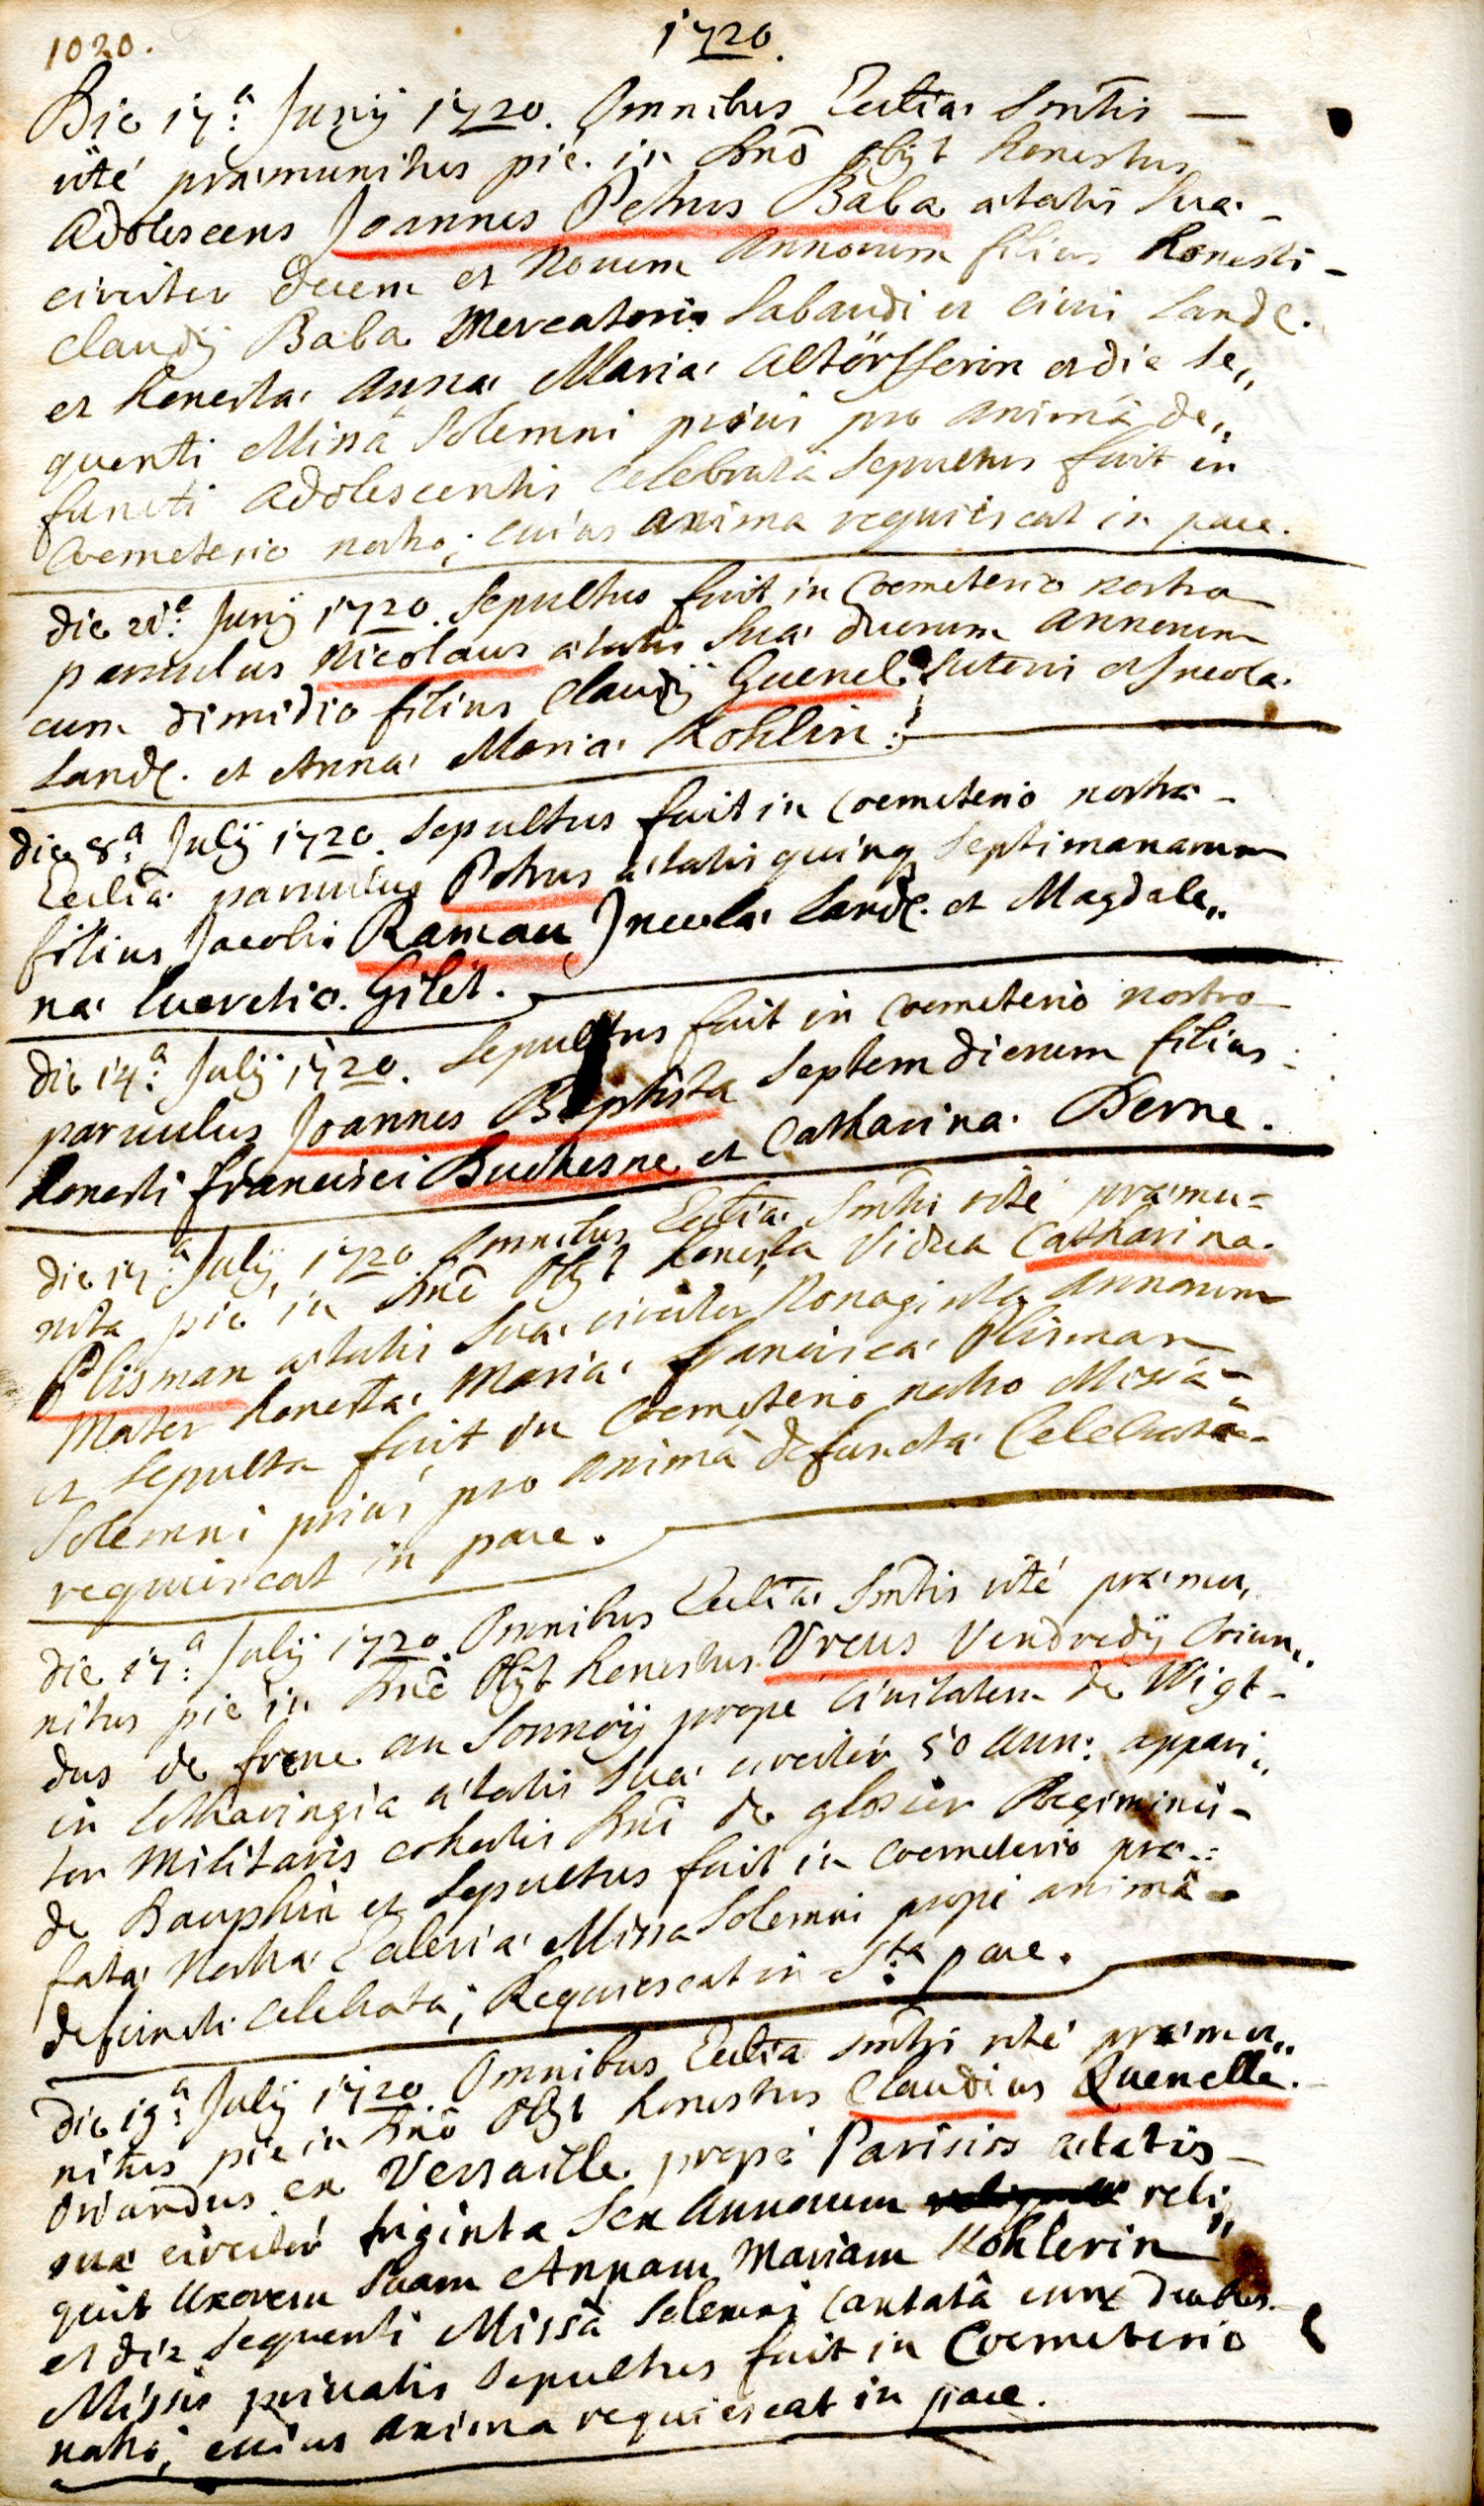 1020.
1720.
Die 17.a Junÿ 1720. Omnibus Ecclia Smtis —
rité præmunitus pié in Dnō obÿt honestus
Adolescens Joannes Petrus Baba ætatis Suæ -
circiter decem et Novem Annorum filius honesti -
Claudÿ Baba Mercatoris Sabaudi et civis Land.
et honestæ Annæ Mariæ Altörfferin et die se,,
quenti Missâ Solemni priùs pro animâ de,,
functi Adolescentis celebratâ Sepultus fuit in
Coemeterio nostro; cuius anima requiescat in pace.
die 21.a Junÿ 1720. Sepultus fuit in Coemeterio nostro
parvulus Nicolaus ætatis Suæ duorum annorum
cum dimidio filius Claudÿ Guenel. Sutoris et Incolæ
Land. et Annæ Mariæ Kohlin.
die 8.a Julÿ 1720. Sepultus fuit in Coemeterio nostræ -
Eccliæ parvulus Petrus ætatis quinq Septimanarum
filius Jacobi Ramau Incolæ Land. et Magdale,,
næ Lucretio. Gilet.
die 14.a Julÿ 1720. Sepultus fuit in Coemeterio nostro
parvulus Joannes Baptista Septem dierum filius
honesti Francisci Duchesne et Catharinæ Berne.
die 17.a Julÿ 1720 Omnibus Eccliæ Smtis rité præmu=
nita pié in Dnō obÿt honesta Vidua Catharina
Plisman ætatis Suæ circiter Nonaginta Annorum
Mater honestæ Mariæ Franciscæ Plisman
et Sepulta fuit in Coemeterio nostro Missâ -
Solemni priùs pro animâ defunctæ Celebratâ -
requiescat in pace.
die 17.a Julÿ 1720. Omnibus Eccliæ Smtis rité præmu,,
nitus pié in Dnō obÿt honestus Vrcus Vendredÿ Oriun,,
dus de frene au Sonnoÿ propé Civitatem de Wigt -
in Lotharingia ætatis Suæ circiter 50 ann: appari,,
tor Militaris cohortis Dni de glosier Regiminis -
de Dauphin et Sepultus fuit in Coemeterio præ=
fatæ Nostræ Ecclesiæ Missâ Solemni propé animâ -
defuncti celebratâ; Requiescat in Sta pace.
die 19.a Julÿ 1720. Omnibus Eccliæ Smtis rité præmu,,
nitus pié in Dnō obÿt honestus Claudius Quenelle.
Oriundus ex Versaille propé Parisios ætatis -
suæ circiter triginta Sex Annorum reli,,
quit Uxorem Suam Annam Mariam Kohlerin
et die Sequenti Missâ Solemni Cantatâ cum duabus
Missis privatis Sepultus fuit in Coemeterio
nostro, cuius anima requiescat in pace.